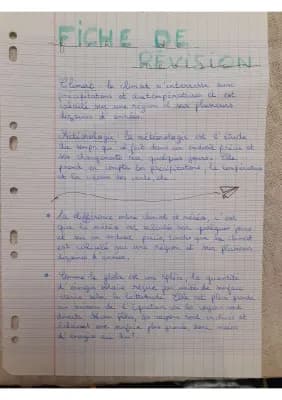 FICHE DE
RÉVISION
Climat: le climat s'intéresse aux
précipitations et aux températures. Il est
calculé sur une région et sur plusieurs
dizaines d'années.
Météorologie: la météorologie est l'étude
du temps qu'il fait dans un endroit précis et
ses changements sur quelques jours. Elle
prend en compte les précipitations, la température
et la vitesse des vents, etc...
La différence entre climat et météo, c'est
que la météo est calculée sur quelques jours
et sur un endroit précis, tandis que le climat
est calculé sur une région et sur plusieurs
dizaines d'années.
Comme le globe est une sphère, la quantité
d'énergie solaire reçue par unité de surface
varie selon la latitude. Elle est plus grande
au niveau de l'équateur car les rayons sont
directs. Aux pôles, les rayons sont inclinés et
éclairent une surface plus grande donc moins
d'énergie au